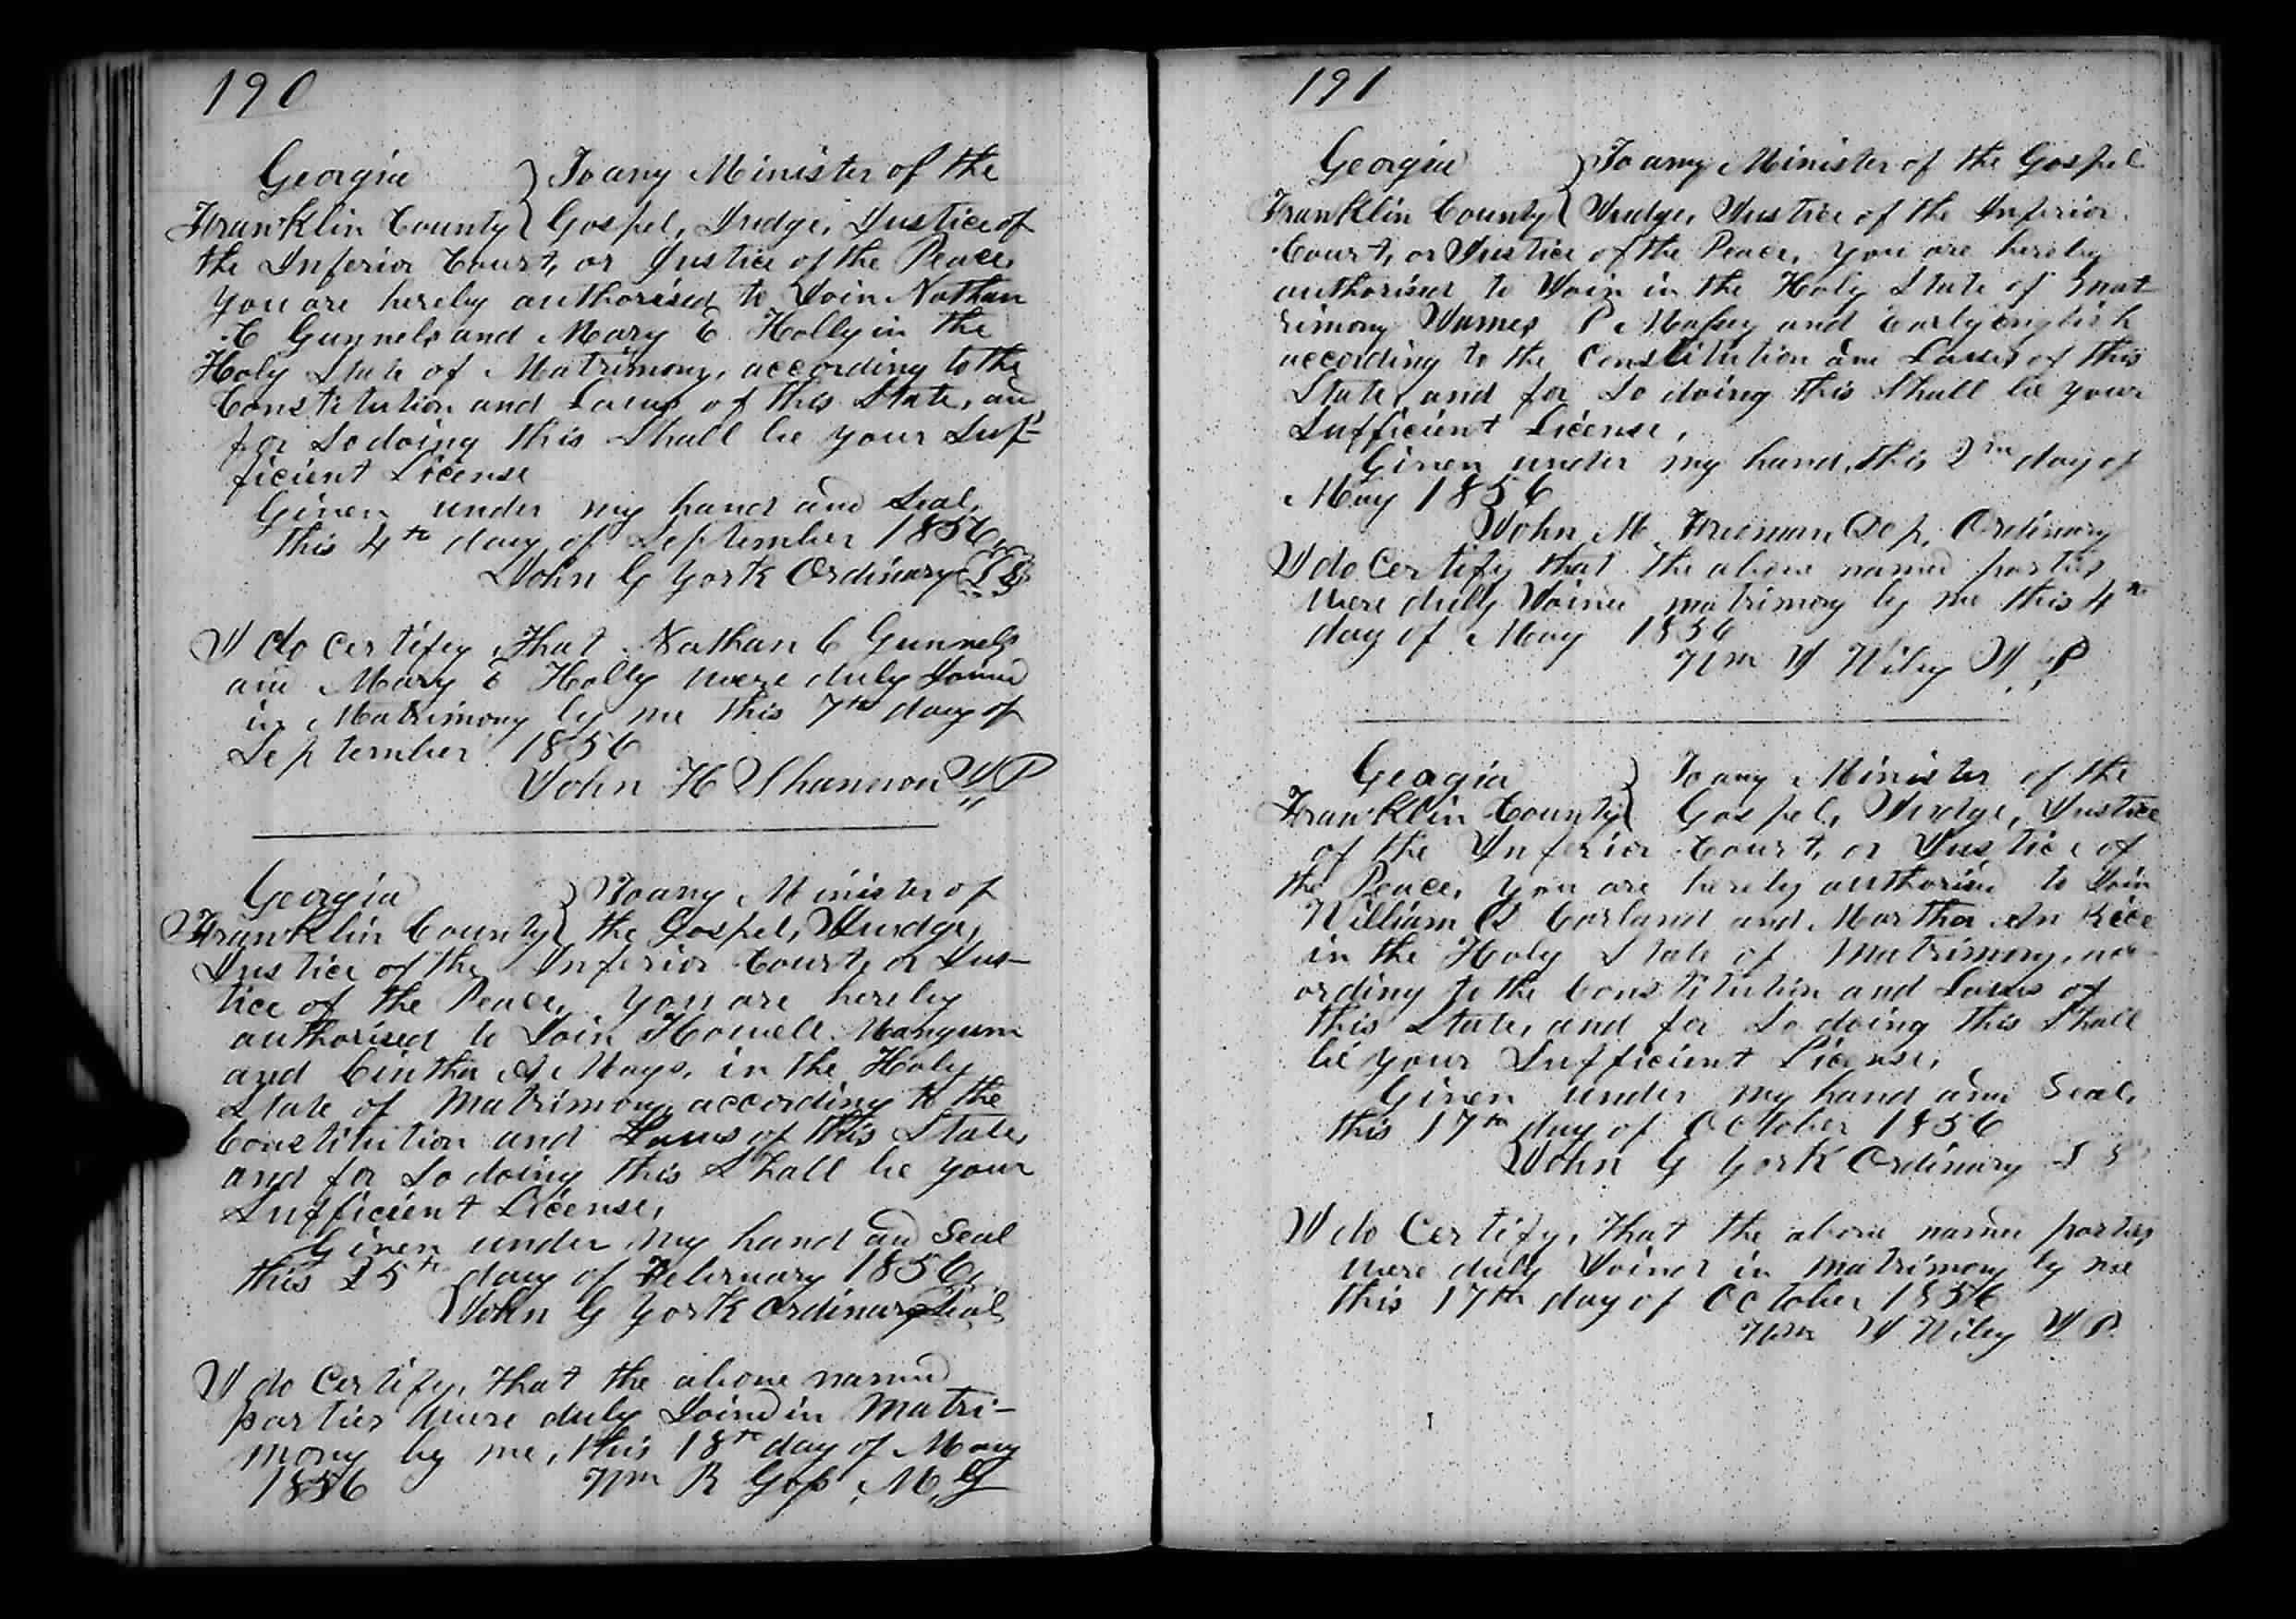 190
Georgia } To any Minister of the
Franklin County { Gospel, Judge, Justice of
the Inferior Court, or Justice of the Peace,
you are hereby authorised to Join Nathan
C Gunnels and Mary E Holly in the
Holy State of Matrimony, according to the
Constitution and Laws of this State, and
for So doing this Shall be your Suf=
ficient License
Given under my hand and Seal,
this 4th day of September 1856,
John G York Ordinary L S
I do certify, That Nathan C Gunnels
and Mary E Holly were duly Joined
in Matrimony by me this 7th day of
September 1856
John H Shannon J P
Georgia } To any Minister of
Franklin County { the Gospel, Judge,
Justice of the Inferior Court, or Jus-
tice of the Peace, you are hereby
authorised to Join Howell Mangum
and Cintha A Mays, in the Holy
State of Matrimony, according to the
Constitution and Laws of this State,
and for So doing this Shall be your
Sufficient License,
Given under my hand and Seal
this 25th day of February 1856,
John G York Ordinary Seal
I do Certify, that the above named
parties were duly Joined in Matri-
mony by me, this 18th day of May
1856 Wm R Goss, M, G
191
Georgia } To any Minister of the Gospel
Franklin County { Judge, Justice of the Inferior
Court, or Justice of the Peace, you are hereby
authorised to Join in the Holy State of Mat
rimony James P Massey and Early English
according to the Constitution and Laws of this
State, and for So doing this Shall be your
Sufficient License,
Given under my hand, this 2nd day of
May 1856
John M Freeman Dep, Ordinary
I do Certify that the above named parties
were duly Joined matrimony by me this 4th
day of May 1856
Wm J Wiley J, P
Georgia } To any Minister of the
Franklin County { Gospel, Judge, Justice
of the Inferior Court, or Justice of
the Peace, you are hereby authorised to Join
William Garland and Martha An Rice
in the Holy State of Matrimony, acc
ording to the Constitution and Laws of
this State, and for So doing this Shall
be your Sufficient License,
Given under my hand and Seal,
this 17th day of October 1856
John G York Ordinary L S
I do Certify, that the above named parties
were duly Joined in matrimony by me
this 17th day of October 1856
Wm J Wiley J P.